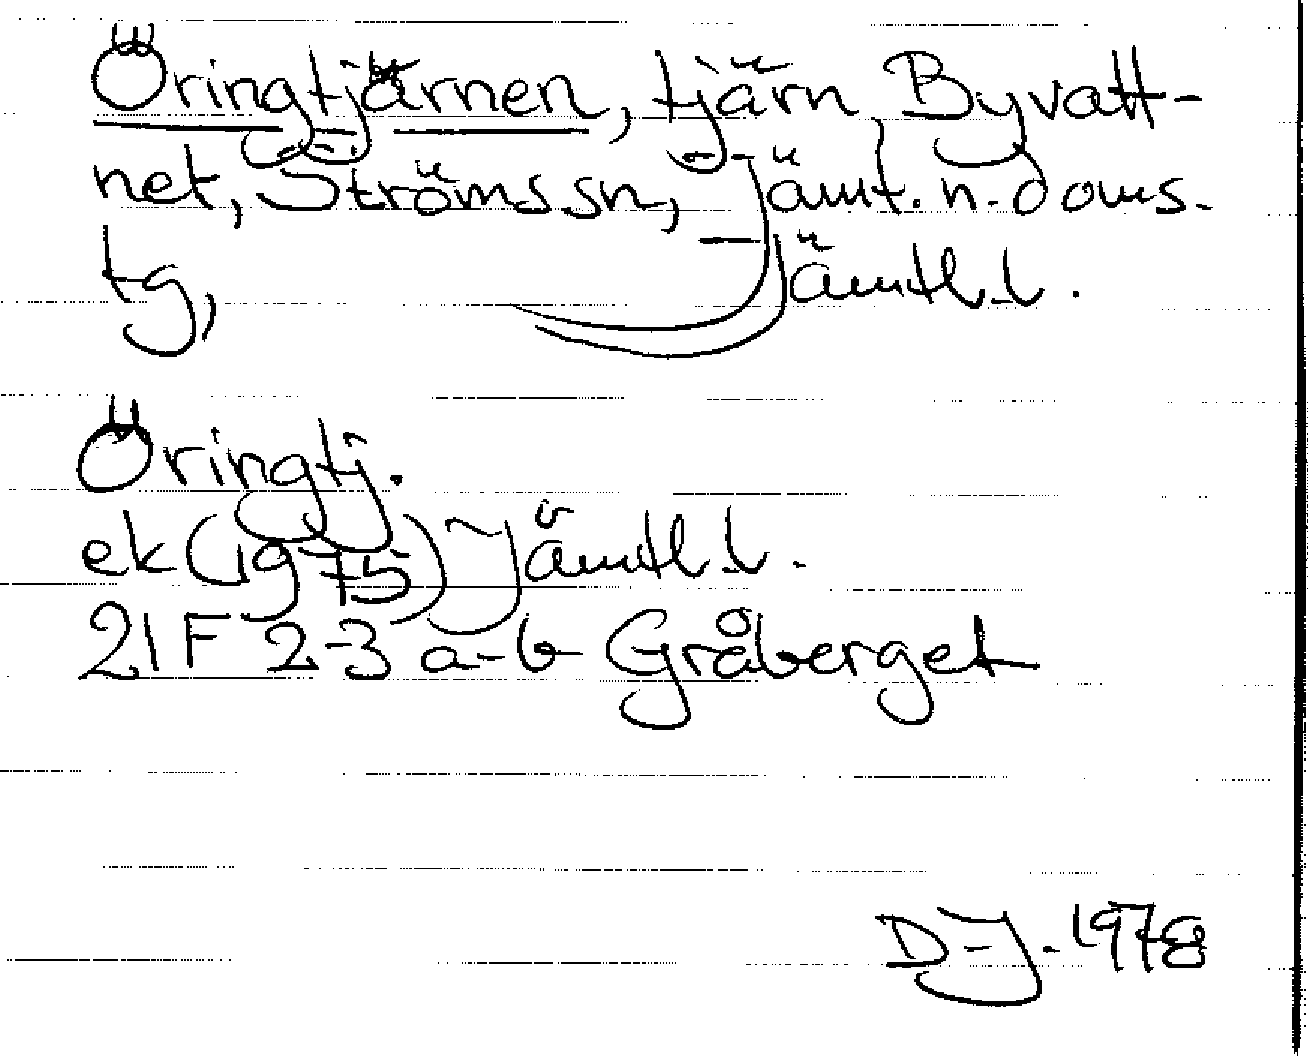 Öringtjärnen, tjärn, Byvatt-
net, Ströms sn, Jämt. n. doms.
tg, Jämtl. l.
Öringtj.
ek (1975) Jämtl. l.
21F 2-3 a-b Gråberget
D-J. 1978